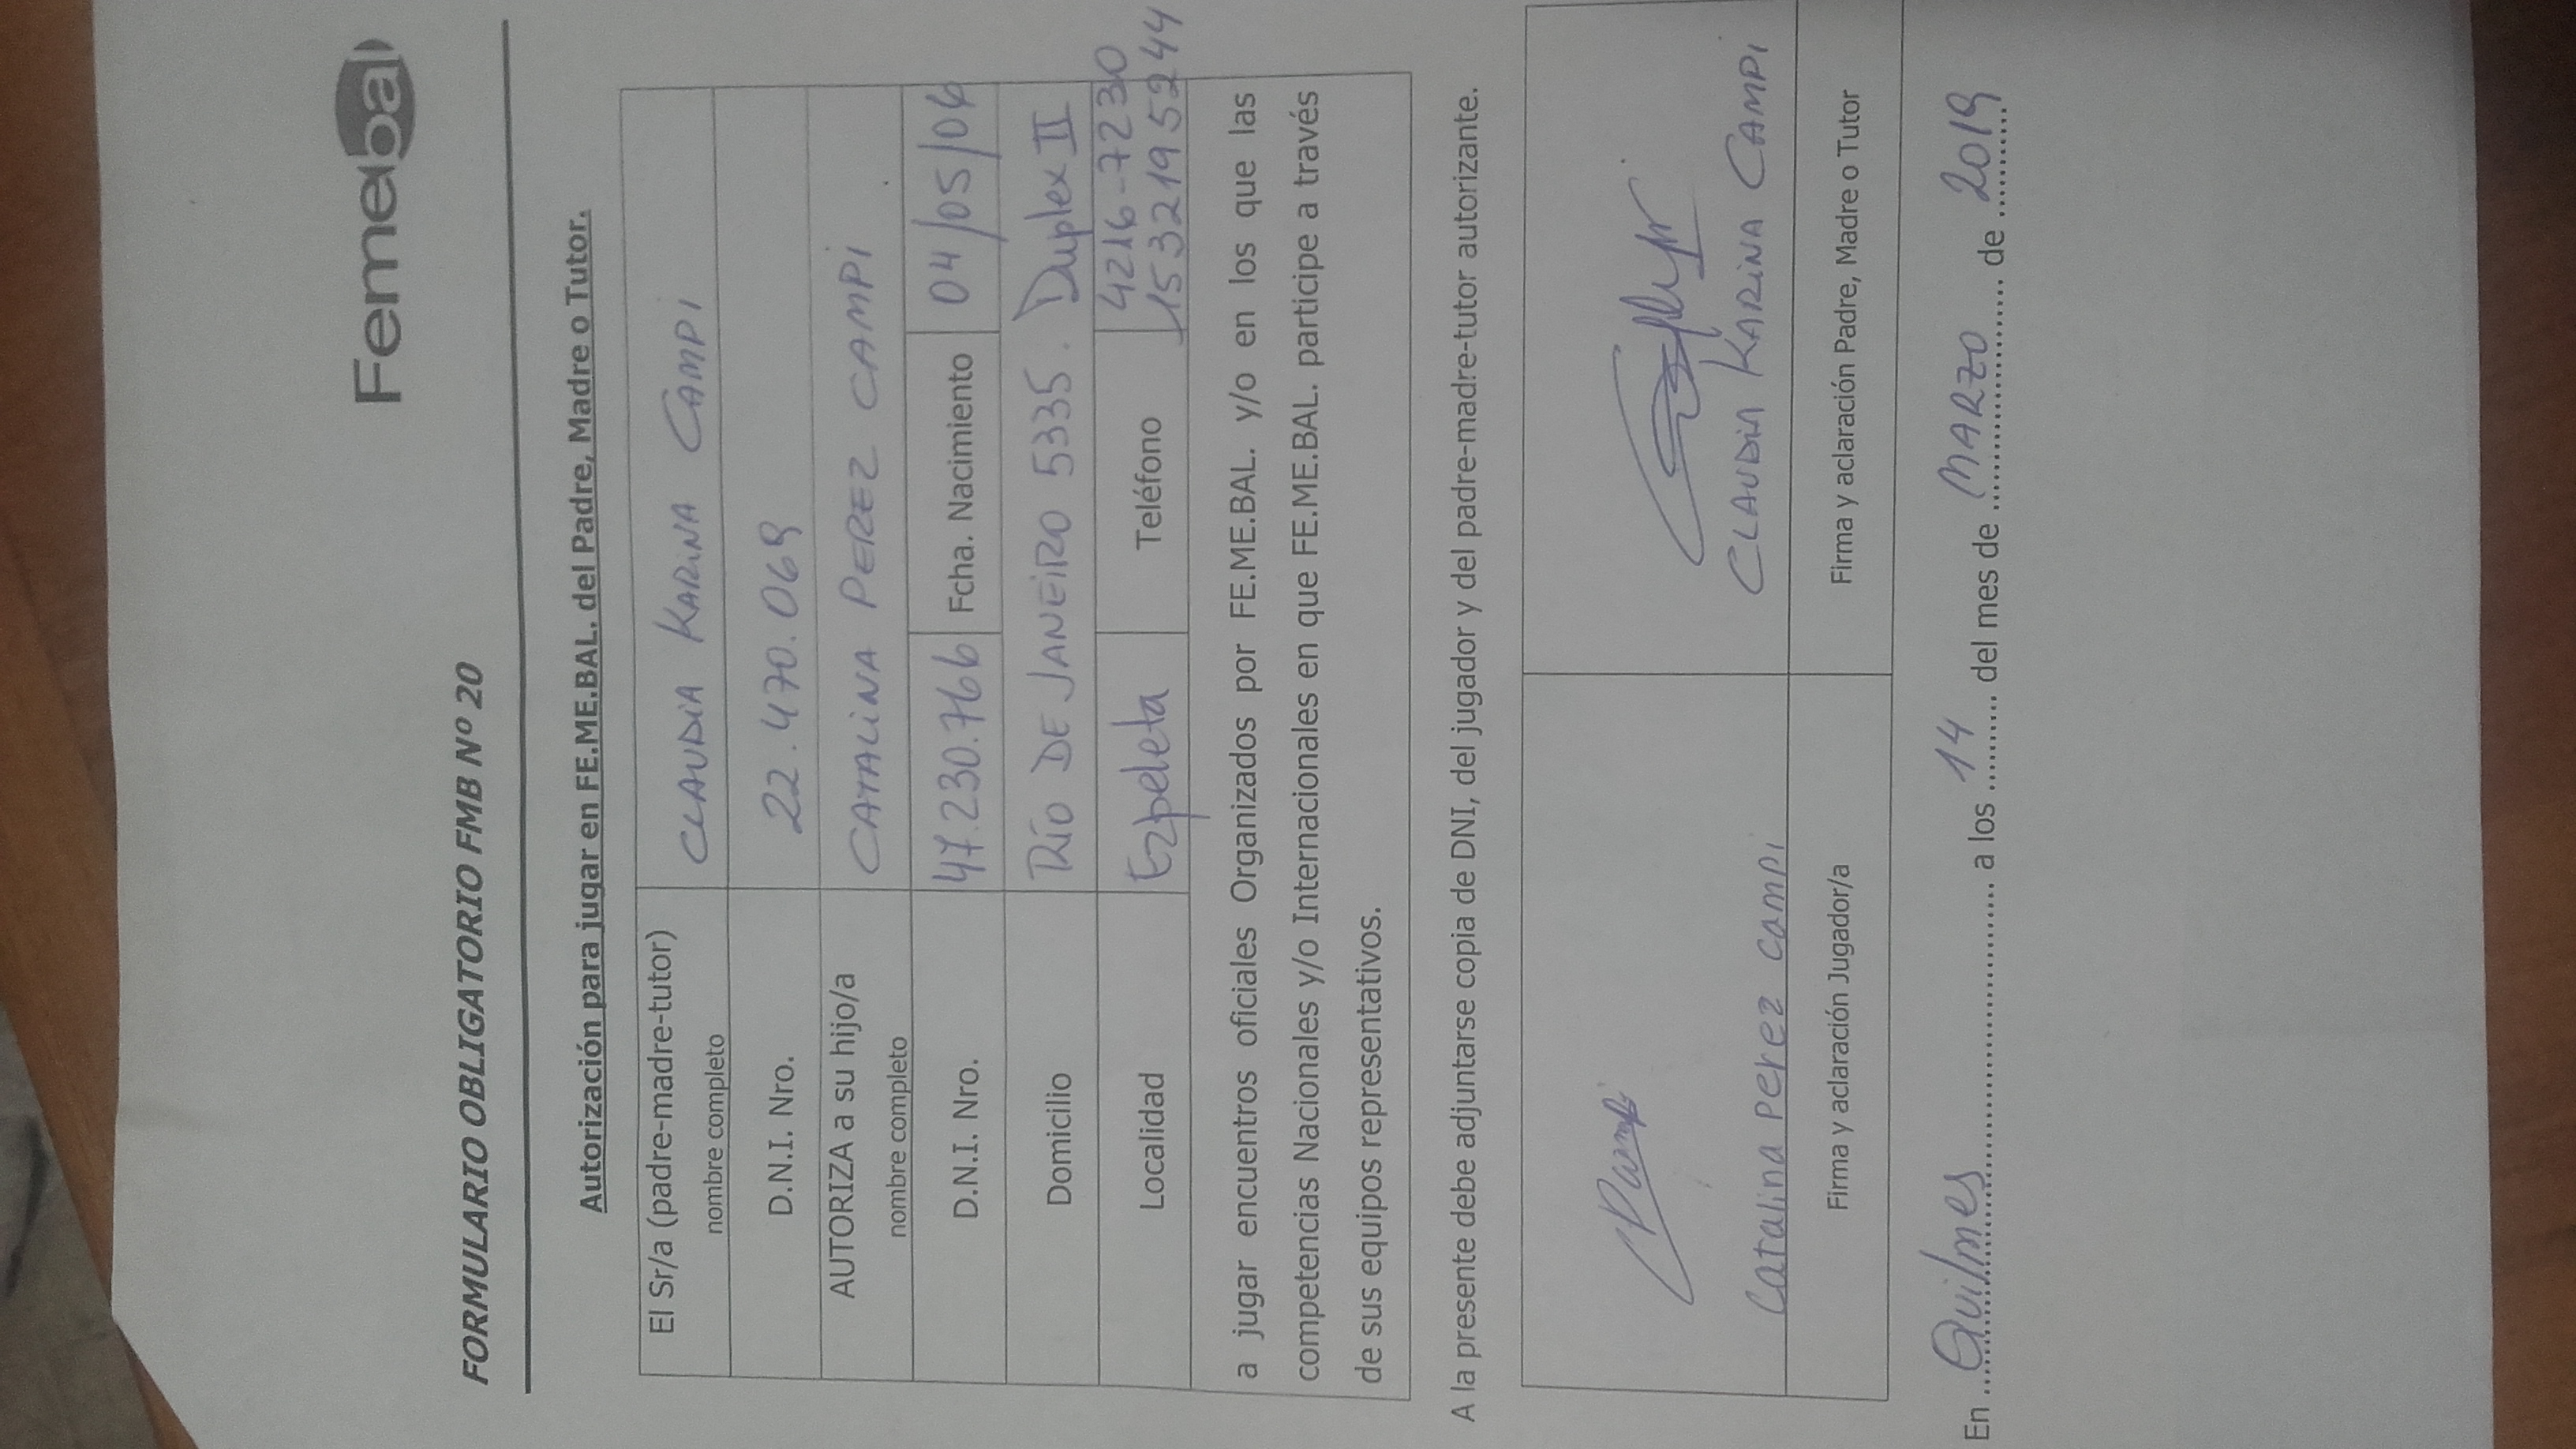 Femebal
FORMULARIO OBLIGATORIO FMB Nº 20
Autorización para jugar en FE.ME.BAL. del Padre, Madre o Tutor.
El Sr/a (padre-madre-tutor) nombre completo CLAUDIA KARINA CAMPI
D.N.I. Nro. 22.470.069
AUTORIZA a su hijo/a nombre completo CATALINA PEREZ CAMPI
D.N.I. Nro. 47.230.766 Fcha. Nacimiento 04/05/06
Domicilio RÍO DE JANEIRO 5335. Duplex II
Localidad Ezpeleta Teléfono 4216-7230
1532195244
a jugar encuentros oficiales Organizados por FE.ME.BAL. y/o en los que las
competencias Nacionales y/o Internacionales en que FE.ME.BAL. participe a través
de sus equipos representativos.
A la presente debe adjuntarse copia de DNI, del jugador y del padre-madre-tutor autorizante.
Catalina Perez Campi CLAUDIA KARINA CAMPI
Firma y aclaración Jugador/a Firma y aclaración Padre, Madre o Tutor
En Quilmes a los 14 del mes de MARZO de 2019